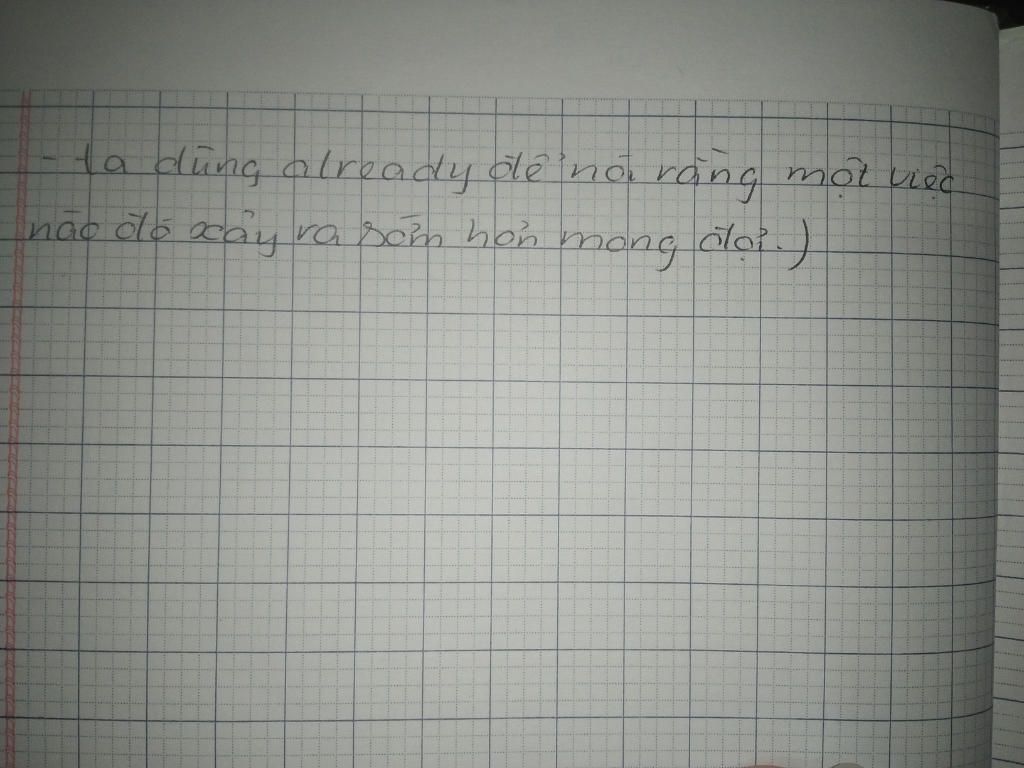 - ta dùng already để nói rằng một việc
nào đó xảy ra sớm hơn mong đợi.)